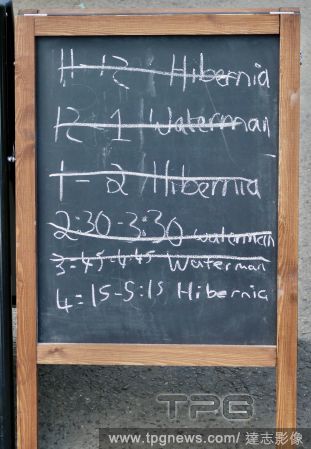 11-12 Hibernia
12-1 Waterman
1-2 Hibernia
2:30-3:30 Waterman
3-45-4:45 Waterman
4=15-5:15 Hibernia
TPG
www.tpgnews.com/ 達志影像